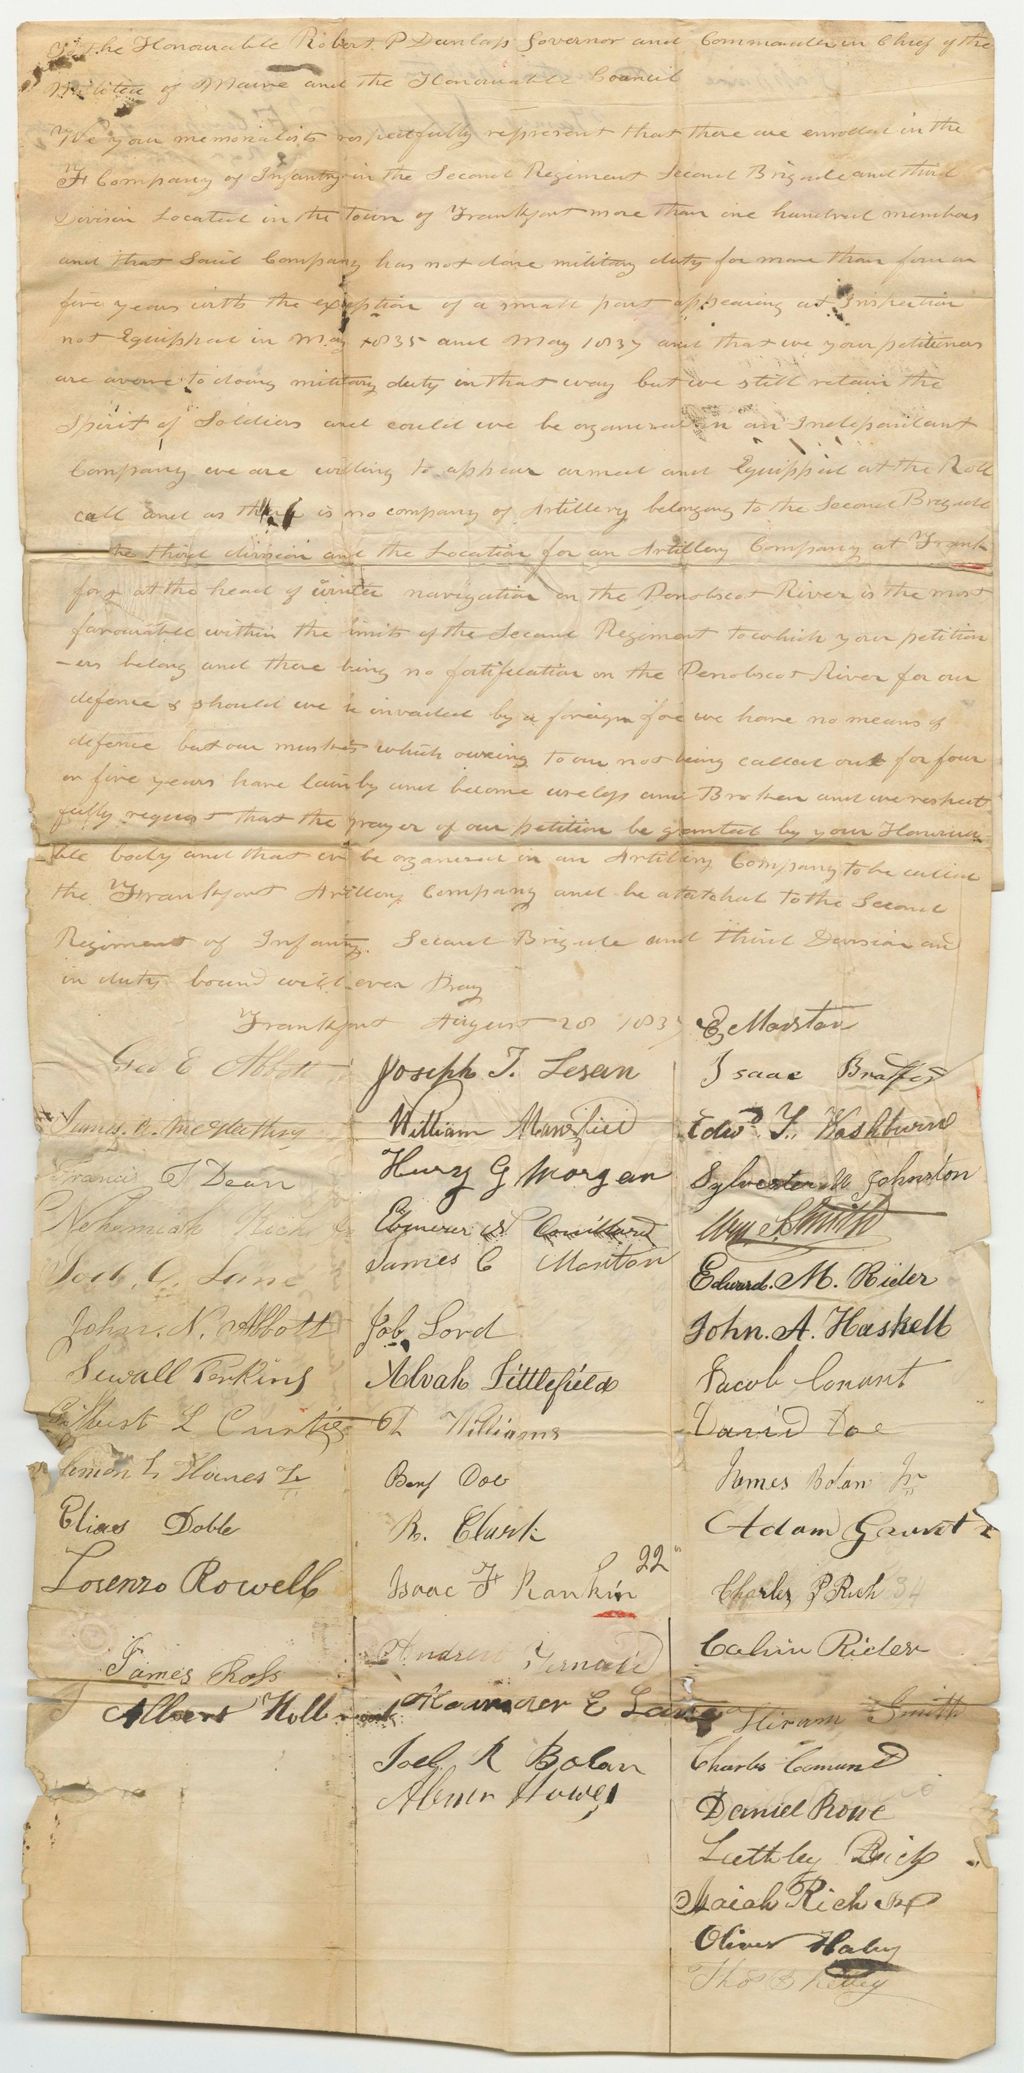 To the Honourable Robert P Dunlap Governor and Commander in Chief of the
Militia of Maine and the Honourable Council
We your memorialists respectfully represent that there are enrolled in the
F Company of Infantry in the Second Regiment Second Brigade and third
Division Located in the town of Frankfort more than one hundred members
and that Said Company has not done military duty for more than four or
five years with the exeption of a small part appearing at Inspection
not Equipped in May 1835 and May 1837 and that we your petitioners
are averse to doing military duty in that way but we still retain the
Spirit of Soldiers and could we be organized in an Independant
Company we are willing to appear armed and Equipped at the Roll
call and as there is no company of Artillery belonging to the Second Brigade
the third division and the Location for an Artillery Company at Frank
fort at the head of winter navigation on the Penobscot River is the most
favourable within the limits of the Second Regiment to which your petition
-ers belong and there being no fortification on the Penobscot River for our
defence & should we be invaded by a foreign foe we have no means of
defence but our muskets which owing to our not being called out for four
or five years have lain by and become useless and Broken and we respect
fully request that the prayer of our petition be granted by your Honoura-
ble body and that we be organized in an Artillery Company to be called
the Frankfort Artillery Company and be atatched to the Second
Regiment of Infantry Second Brigade and third Division and
in duty bound will ever Pray
Frankfort August 28 1837
Geo E Abbott
James A. McGlathry
Francis T Dean
Nehemiah Rich
Joel G. Lane
John. N. Abbott
Sewall Perkins
Gilbert L Curtis
L Haines
Elias Doble
Lorenzo Rowell
James Ross
Albert
Joseph T. Lesan
William Mansfield
Henry G Morgan
Ebenezer
James C Manton
Job Lord
Alvah Littlefield
Williams
Benj Doe
R. Clark
Isaac F Rankin 22
Andrew Fernald
Alexander E Lane
Joel R Bolan
Abner Howes
E Marston
Isaac
Edwd T. Washburn
Sylvester W Johnston
Wm S Smith
Edward. M. Rider
John. A. Haskell
Jacob Conant
David Doe
James Bolan Jr
Adam Grant
Charles P Rich 34
Calvin Rider
Hiram Smith
Charles
Daniel Rowe
Luthly Rich
Isaiah Rich Jr
Oliver Haley
Thos B Kelley